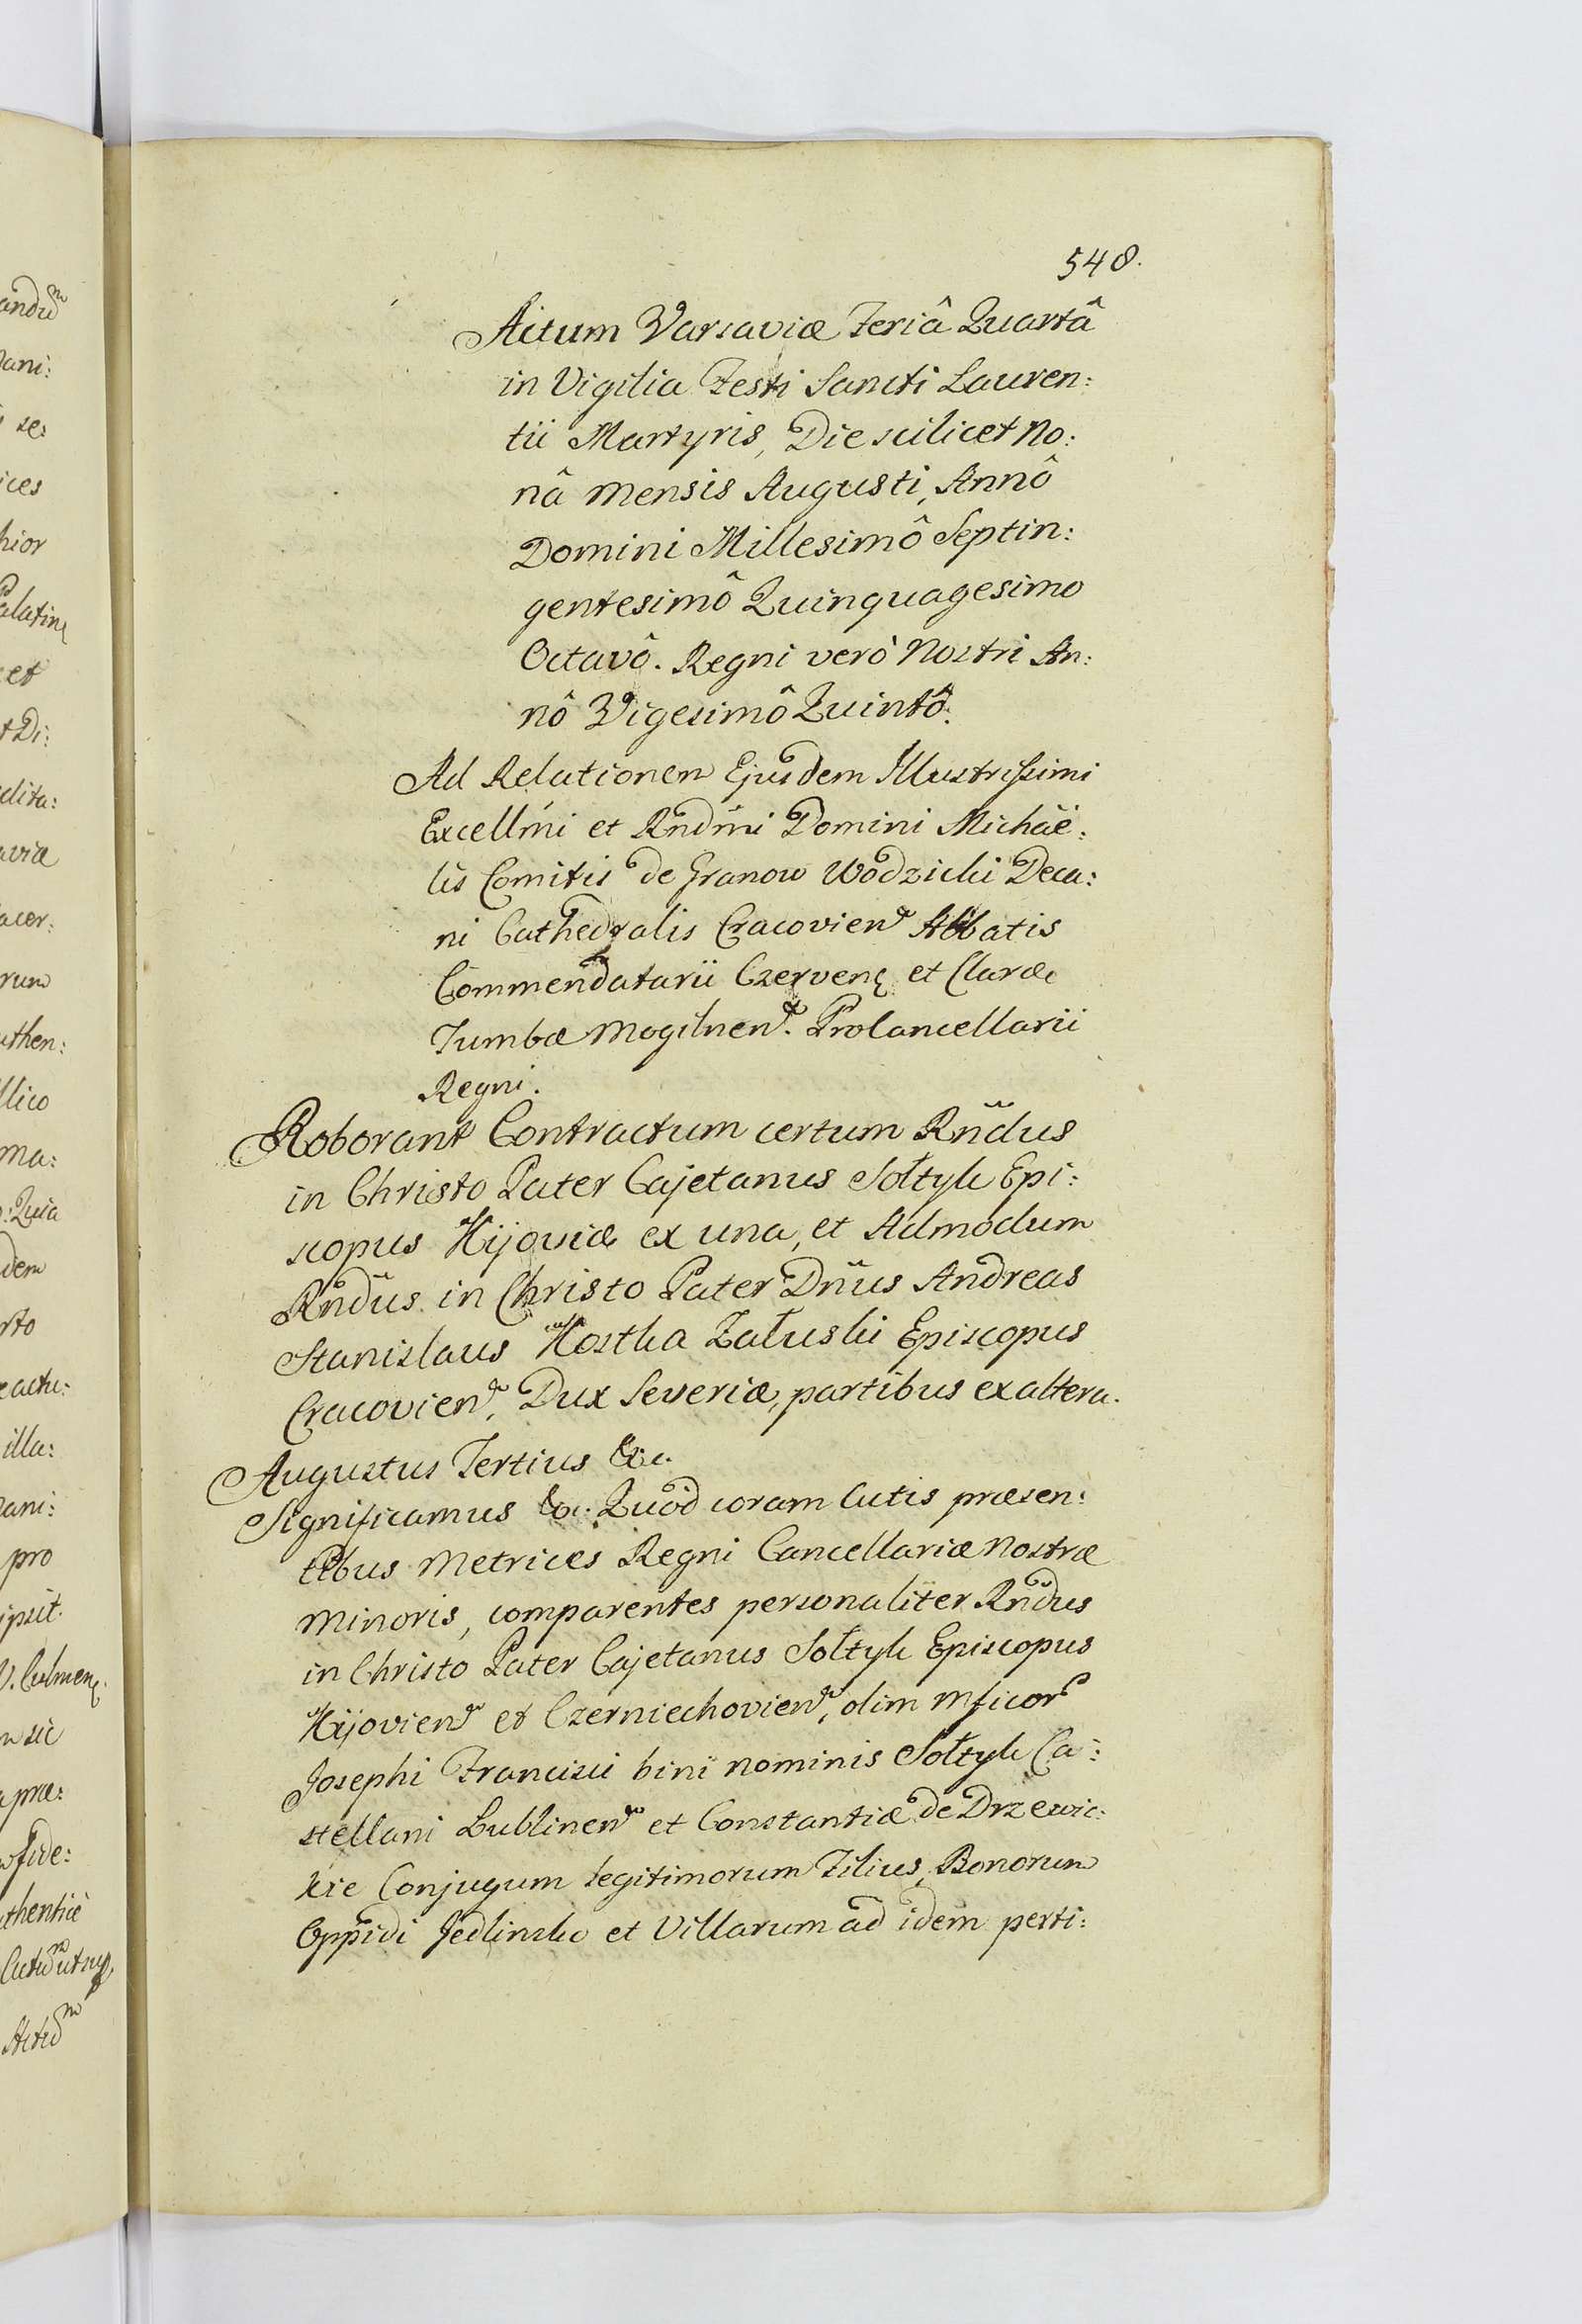 548.
Actum Varsaviæ Feriâ Quartâ
in Vigilia Festi Sancti Lauren:
tii Martyris, Die scilicet No:
nâ mensis Augusti, Annô
Domini Millesimô Septin:
gentesimô Quinquagesimo
Octavô. Regni verò Nostri An:
nô Vigesimô Quintô.
Ad Relationem Ejusdem Illustrissimi
Excellm̃i et Rnd̃mi Domini Michaë:
lis Comitis de Granow Wodzicki Deca:
ni Cathedralis Cracovien. Abbatis
Commendatarii Czerven. et Claræ
Tumbæ Mogilnen. Procancellarii
Regni.
Roborant Contractum certum Rñdus
in Christo Pater Cajetanus Sołtyk Epi:
scopus Kijoviæ ex una, et Admodum
Rñdus in Christo Pater Dñus Andreas
Stanislaus Kostka Załuski Episcopus
Cracovien, Dux Severiæ, partibus ex altera.
Augustus Tertius &c.
Significamus &c. Quod coram Actis præsen:
tibus Metrices Regni Cancellariæ Nostræ
Minoris, comparentes personaliter Rñdus
in Christo Pater Cajetanus Sołtyk Episcopus
Kijovien et Czerniechovien, olim Mficor
Josephi Francisci bini nominis Sołtyk Ca:
stellani Lublinen et Constantiæ de Drzewic:
kie Conjugum legitimorum Filius, Bonorum
Oppidi Jedlinsko et Villarum ad idem perti:
andum
ani:
se:
ices
hior
alatin
et
t Di:
dita:
aviæ
acer:
rum
uthen:
llico
ma:
: Quia
dem
rto
e actu:
illa:
ani:
pro
ipsit.
. Culmen.
n sic
præ:
fide:
uthenticè
Actum ut sup
Actum